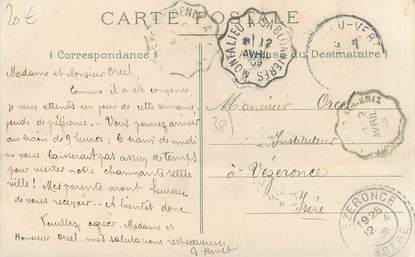 20€
CARTE POSTALE
(Correspondance)
du Destinataire)
MONTALIEU A SABLONNIÈRES
12
AVRIL
09
Madame et Monsieur Orcel.
Comme il a été convenu,
je vous attends un jour de cette semaine,
jeudi de préférence. Vous pouvez arriver
au train de 9 heures; le train de midi
ne vous laisserait pas assez de temps
pour visiter notre charmante petite
ville! Mes parents seront heureux
de vous recevoir. et bientôt donc
Veuillez agréer, Madame et
Monsieur Orcel, mes salutations respectueuses
G. Rivet
Monsieur Orcel
38
Instituteur
à Vézeronce
Isère
12
AVRIL
VEZERONCE
ISÈRE